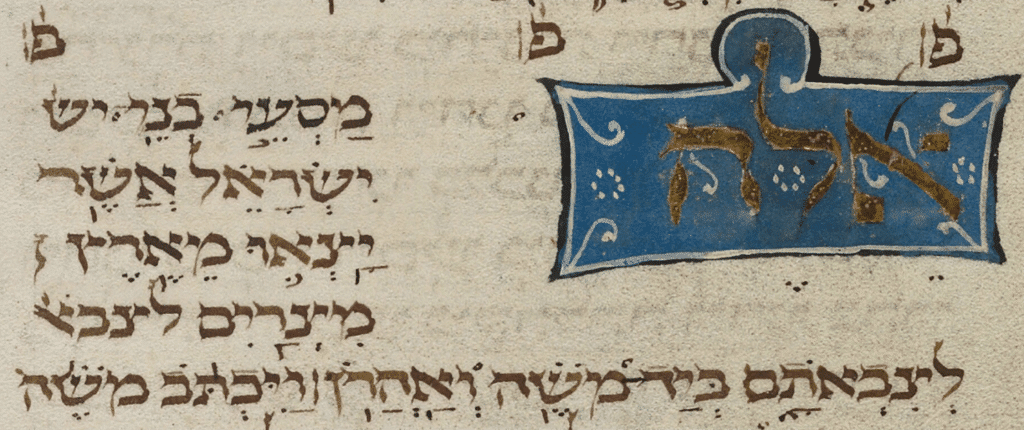 פ פ פ
אֵלֶּה
מַסְעֵי בְנֵי יש
יִשְׂרָאֵל אֲשֶׁר
יָצְאוּ מֵאֶרֶץ
מִצְרַיִם לצבא
לְצִבְאֹתָם בְּיַד מֹשֶׁה וְאַהֲרֹן וַיִּכְתֹּב מֹשֶׁה